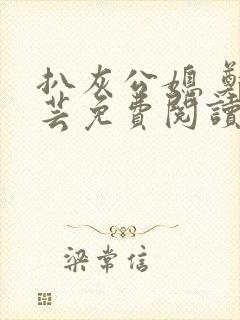 扒灰公媳 鄭
芸免費閱讀
梁常信